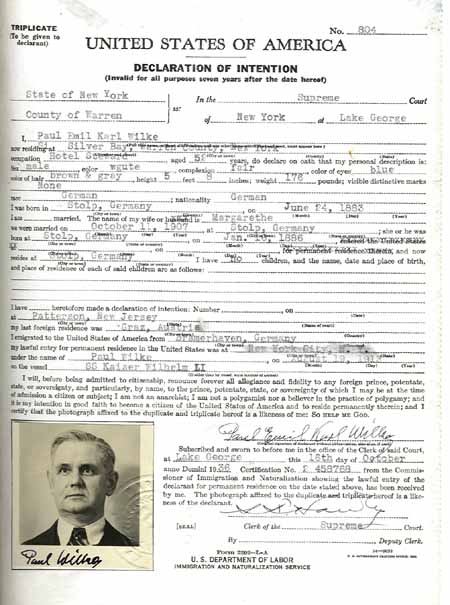 TRIPLICATE
(To be given to
declarant)
No. 804
UNITED STATES OF AMERICA
DECLARATION OF INTENTION
(Invalid for all purposes seven years after the date hereof)
State of New York
In the Supreme Court
County of Warren
ss:
of New York at Lake George
I, Paul Emil Karl Wilke
now residing at Silver Bay, Warren County, New York
occupation Hotel Steward aged years, do declare on oath that my personal description is:
Sex male color complexion Fair color of eyes blue
color of hair brown & gray height 5 feet 8 inches; weight 178 pounds; visible distinctive marks
None
race German ; nationality German
I was born in Stolp, Germany on June 24, 1883
I am married. The name of my wife or husband is Margarethe
we were married on October 11, 1907 at Stolp, Germany ; she or he was
born at Stolp, Germany on Jan. 16, 1886 , entered the United States
for permanent residence and now
resides at Stolp, Germany. I have no children, and the name, date and place of birth,
and place of residence of each of said children are as follows:
I have heretofore made a declaration of intention: Number on
at Patterson, New Jersey
my last foreign residence was Graz, Austria
I emigrated to the United States of America from Bremerhaven, Germany
my lawful entry for permanent residence in the United States was at New York City,
under the name of Paul Wilke on
on the vessel SS Kaiser Wilhelm II
I will, before being admitted to citizenship, renounce forever all allegiance and fidelity to any foreign prince, potentate,
state, or sovereignty, and particularly, by name, to the prince, potentate, state, or sovereignty of which I may be at the time
of admission a citizen or subject; I am not an anarchist; I am not a polygamist nor a believer in the practice of polygamy; and
it is my intention in good faith to become a citizen of the United States of America and to reside permanently therein; and I
certify that the photograph affixed to the duplicate and triplicate hereof is a likeness of me: SO HELP ME GOD.
Paul Emil Karl Wilke
Subscribed and sworn to before me in the office of the Clerk of said Court,
at Lake George this 18th day of October
anno Domini 1936 Certification No. 2 458768 from the Commis-
sioner of Immigration and Naturalization showing the lawful entry of the
declarant for permanent residence on the date stated above, has been received
by me. The photograph affixed to the duplicate and triplicate hereof is a like-
ness of the declarant.
[SEAL] Clerk of the Supreme Court.
By Deputy Clerk.
Form 2202-L-A
U. S. DEPARTMENT OF LABOR
IMMIGRATION AND NATURALIZATION SERVICE
Paul Wilke